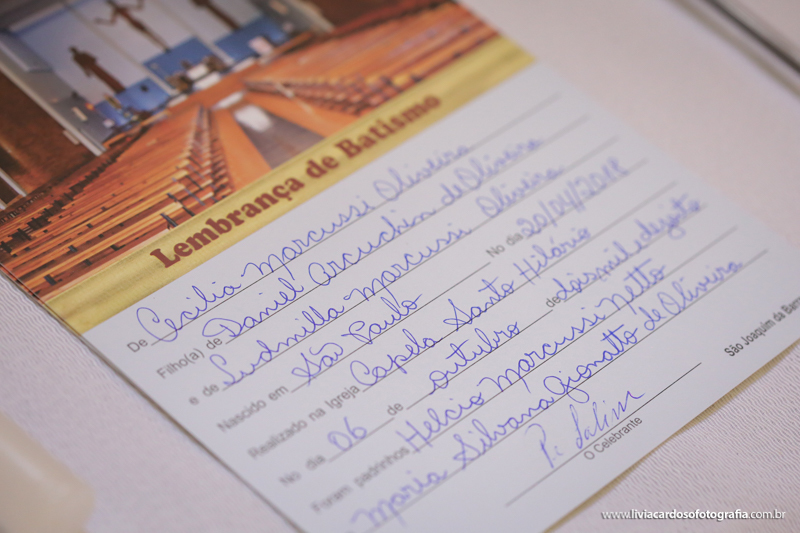 Lembrança de Batismo
De Cecilia Marcussi Oliveira
Filho(a) de Daniel Arcuchin de Oliveira
e de Ludmilla Marcussi Oliveira
Nascido em São Paulo No dia 20/04/2018
Realizado na Igreja Capela Santo Hilário
No dia 06 de outubro de dois mil e dezoito
Foram padrinhos Helcio Marcussi Netto
Maria Silvana Gionatto de Oliveira
O Celebrante
São Joaquim da Barra
www.liviacardosofotografia.com.br